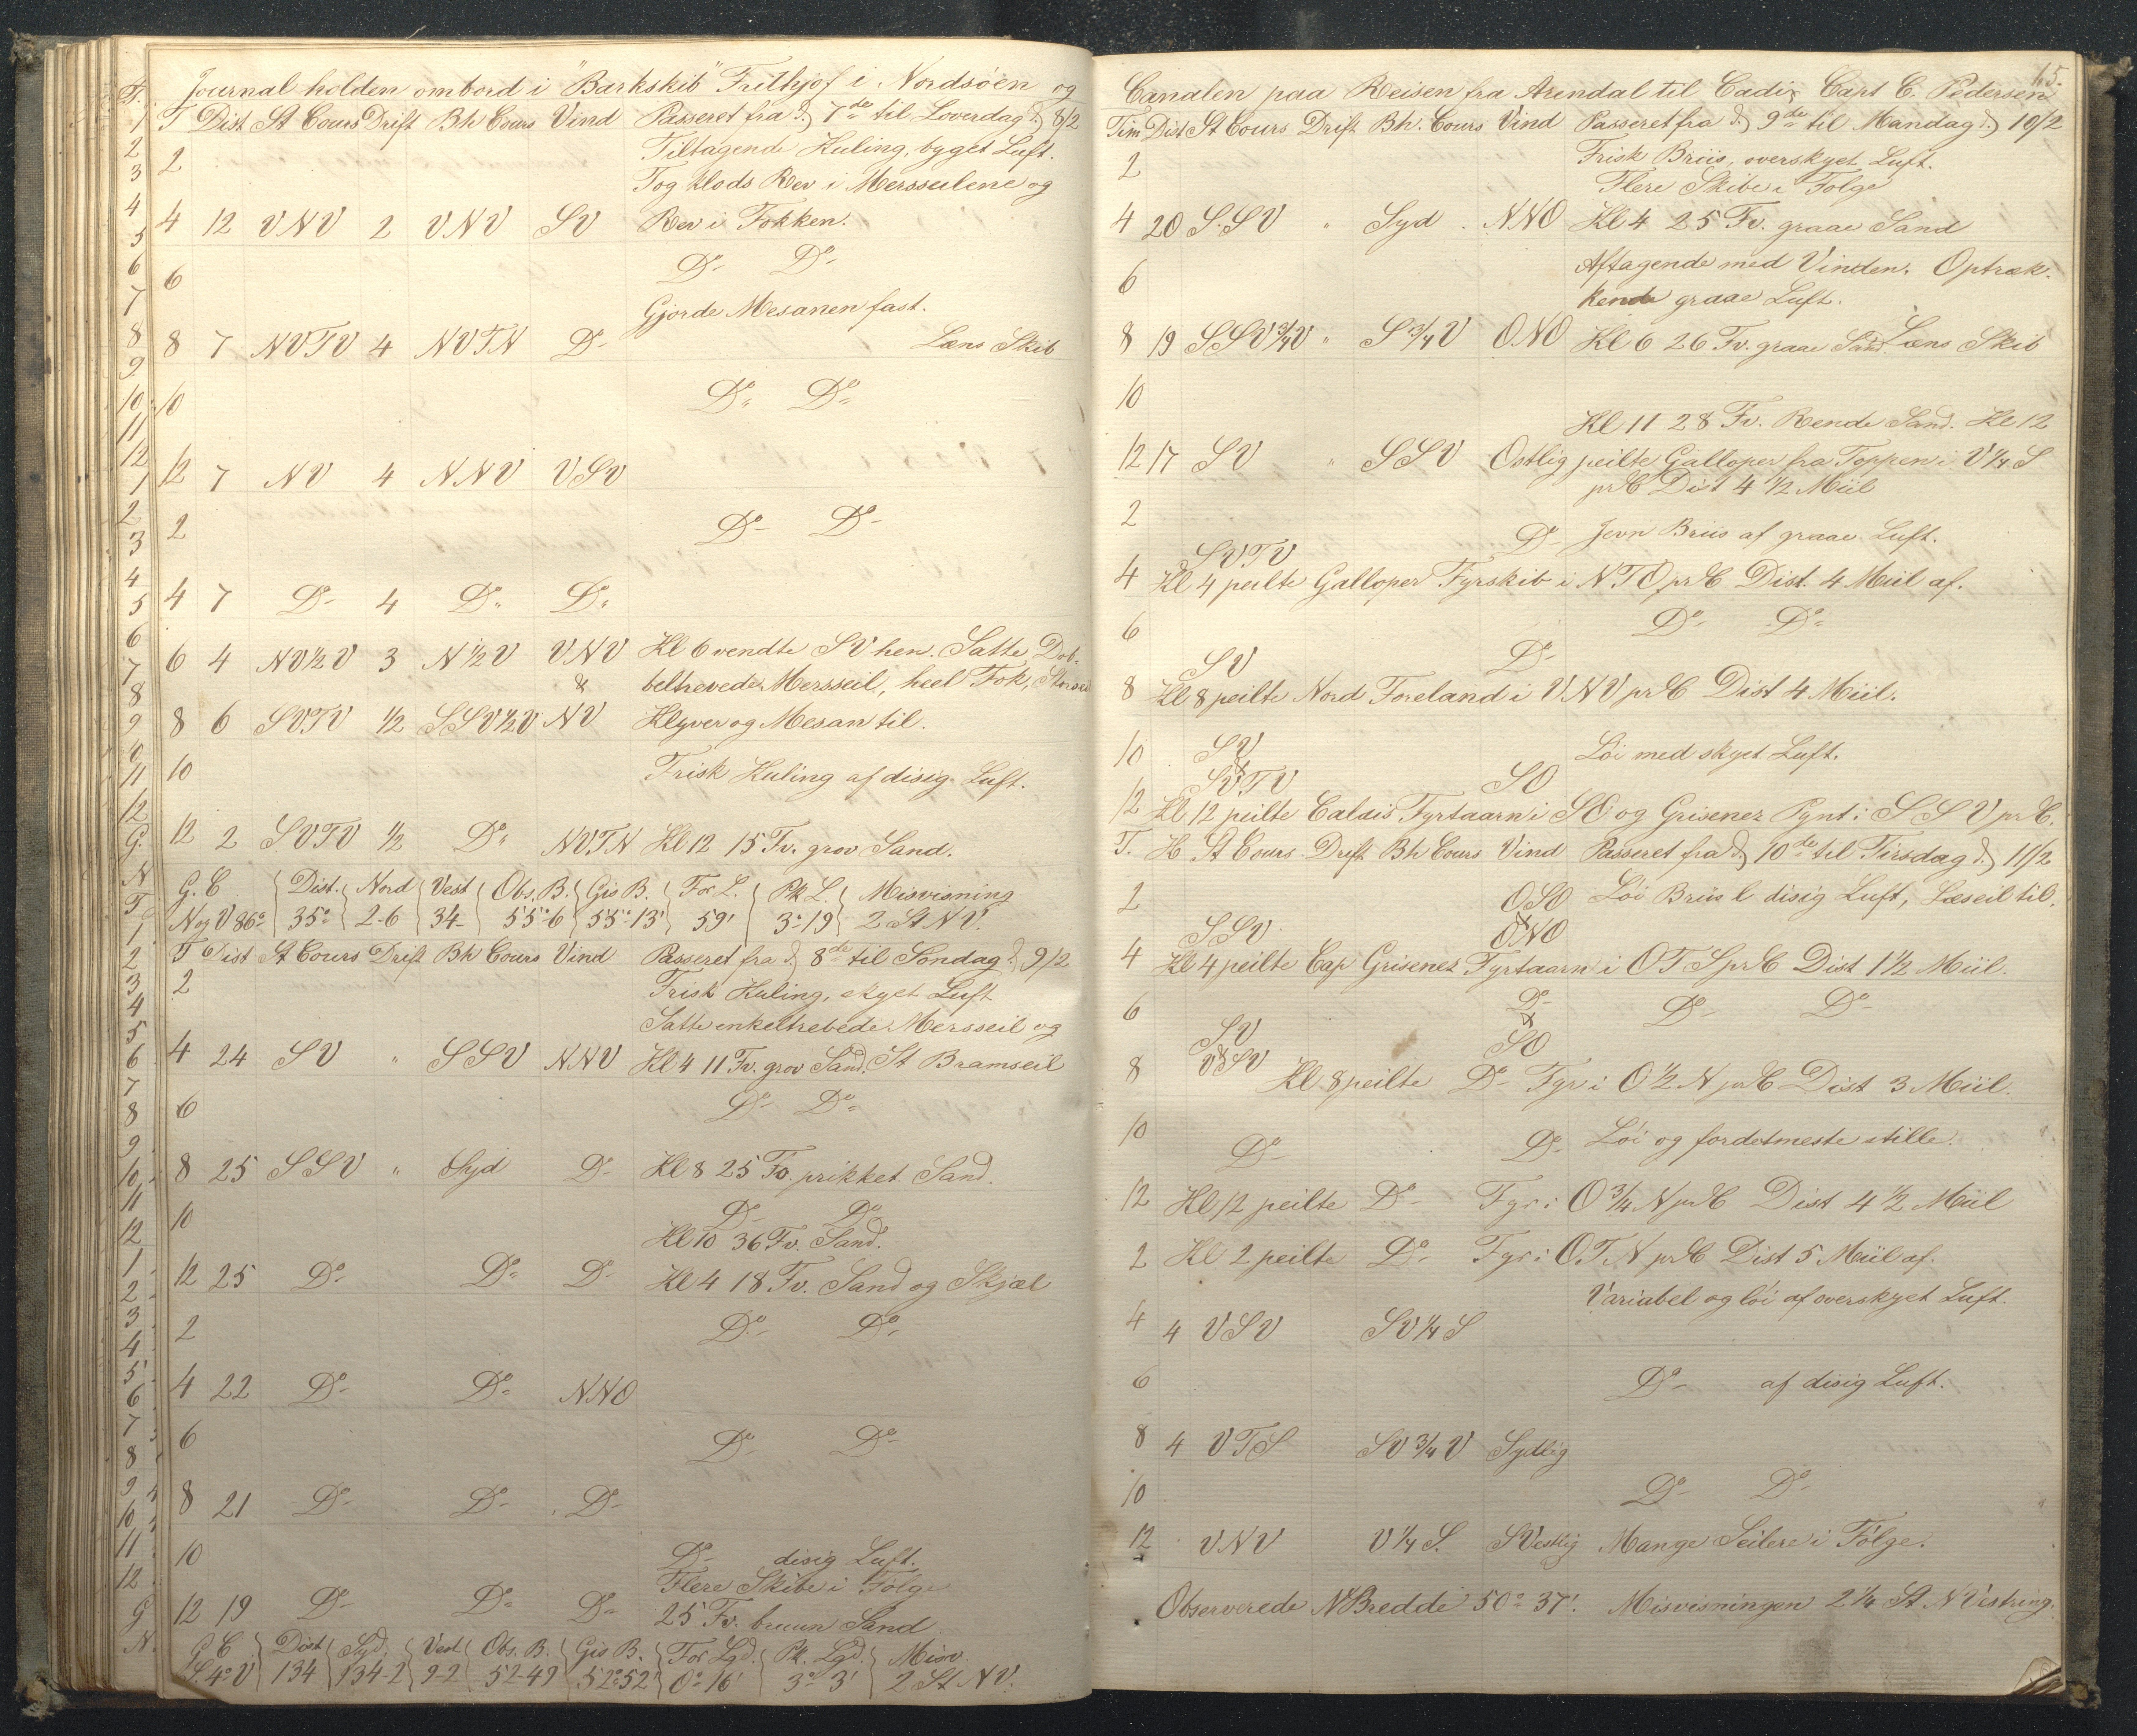 Journal holden ombord i "Barkskib" Frithjof i Nordsöen og
T Dist St Cours Drift Bh Cours Vind Passeret fra d. 7de til Loverdag d. 8/2
2 Tiltagende Kuling, byget Luft.
Tog Klods Rev i Mersseilene og
4 12 VNV 2 VNV SV Rev i Fokken.
6 Do Do
Gjorde Mesanen fast.
8 7 NVTV 4 NVTN Do Læns Skib
10 Do Do
12 7 NV 4 NNV VSV
2 Do Do
4 7 Do 4 Do Do
6 4 NV½V 3 N½V VNV Kl 6 vendte SV hen. Satte Dob-
& beltrevede Mersseil, heel Fok,
8 6 SVTV ½ SSV½V NV Klyver og Mesan til.
10 Frisk Kuling af disig Luft.
12 2 SVTV ½ Do NVTN Kl 12 15 Fv. grov Sand.
G. C Dist. Nord Vest Obs. B. Gis B. For L. Pk L. Misvisning
N og V 86o 35o 2-6 34- 55o-6 55o-13' 59' 3o-19 2 St NV.
T Dist St Cours Drift Bh Cours Vind Passeret fra d. 8de til Söndag d. 9/2
2 Frisk Kuling, skyet Luft
Satte enkeltrebede Mersseil og
4 24 SV " SSV NNV Kl 4 11 Fv. grov Sand. St Bramseil
6 Do Do
8 25 SSV " Syd Do Kl 8 25 Fv. prikket Sand.
10 Do Do
Kl 10 36 Fv. Sand.
12 25 Do Do Do Kl 4 18 Fv. Sand og Skjæl
2 Do Do
4 22 Do Do NNO
6 Do Do
8 21 Do Do Do
10 Do disig Luft.
Flere Skibe i Fölge
12 19 Do Do Do 25 Fv. bruun Sand
G C Dist Syd. Vest Obs. B. Gis B. For Lgd. Pk. Lgd. Misv.
S. 4o V 134 134-2 9-2 52-49 52o52' 0o-16' 3o-3' 2 St NV.
15.
Canalen paa Reisen fra Arendal til Cadix Capt C. Pedersen
Tim Dist St Cours Drift Bh. Cours Vind Passeret fra d. 9de til Mandag d. 10/2
2 Frisk Briis, overskyet Luft.
Flere Skibe i Fölge
4 20 S.SV " Syd NNO Kl 4 25 Fv. graae Sand
6 Aftagende med Vinden. Optræk-
kende graae Luft.
8 19 SSV¾V " S¾V ONO Kl 6 26 Fv. graae Sand. Læns Skib
10
Kl 11 28 Fv. Rende Sand. Kl 12
12 17 SV " SSV Ostlig peilte Galloper fra Toppen i V¼S
pr C Dist 4½ Miil
2 Do Jevn Briis af graae Luft.
SVTV
4 Kl 4 peilte Galloper Fyrskib i NTO pr C Dist. 4 Miil af.
6 Do Do
SV Do
8 Kl 8 peilte Nord Foreland i VNV pr C Dist 4 Miil.
10 SV Löi med skyet Luft.
& SVTV SO
12 Kl 12 peilte Calais Fyrtaarn i SO og Grisenez Pynt i SSV pr C.
T. H St Cours Drift Bh Cours Vind Passeret fra d. 10de til Tirsdag d. 11/2
2 OSO Löi Briis disig Luft, Læseil til.
SSV & ONO
4 Kl 4 peilte Cap Grisenez Fyrtaarn i OTS pr C Dist 1½ Miil.
6 Do Do Do
SV & SO
8 & VSV Kl 8 peilte Do Fyr i O½N pr C Dist 3 Miil.
10 Do Do Löi og fordetmeste stille.
12 Kl 12 peilte Do Fyr i O¾N pr C Dist 4½ Miil
2 Kl 2 peilte Do Fyr i O.T.N pr C Dist 5 Miil af.
Variabel og löi af overskyet Luft.
4 4 VSV SV¼S
6 Do af disig Luft.
8 4 VTS SV¾V Sydlig
10 Do Do
12 VNV V¼S. SVestlig Mange Seilere i Fölge.
Observerede N Bredde 50o 37'. Misvisningen 2¼ St N Vestring.